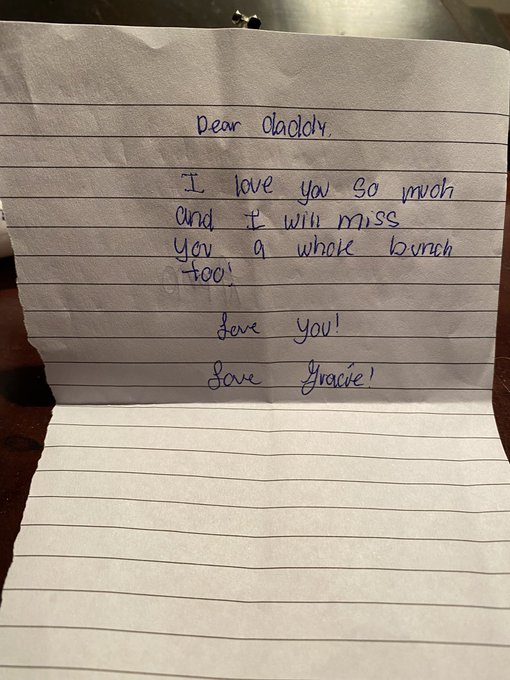 Dear daddy,
I love you so much
and I will miss
you a whole bunch
too!
Love you!
Love Gracie!